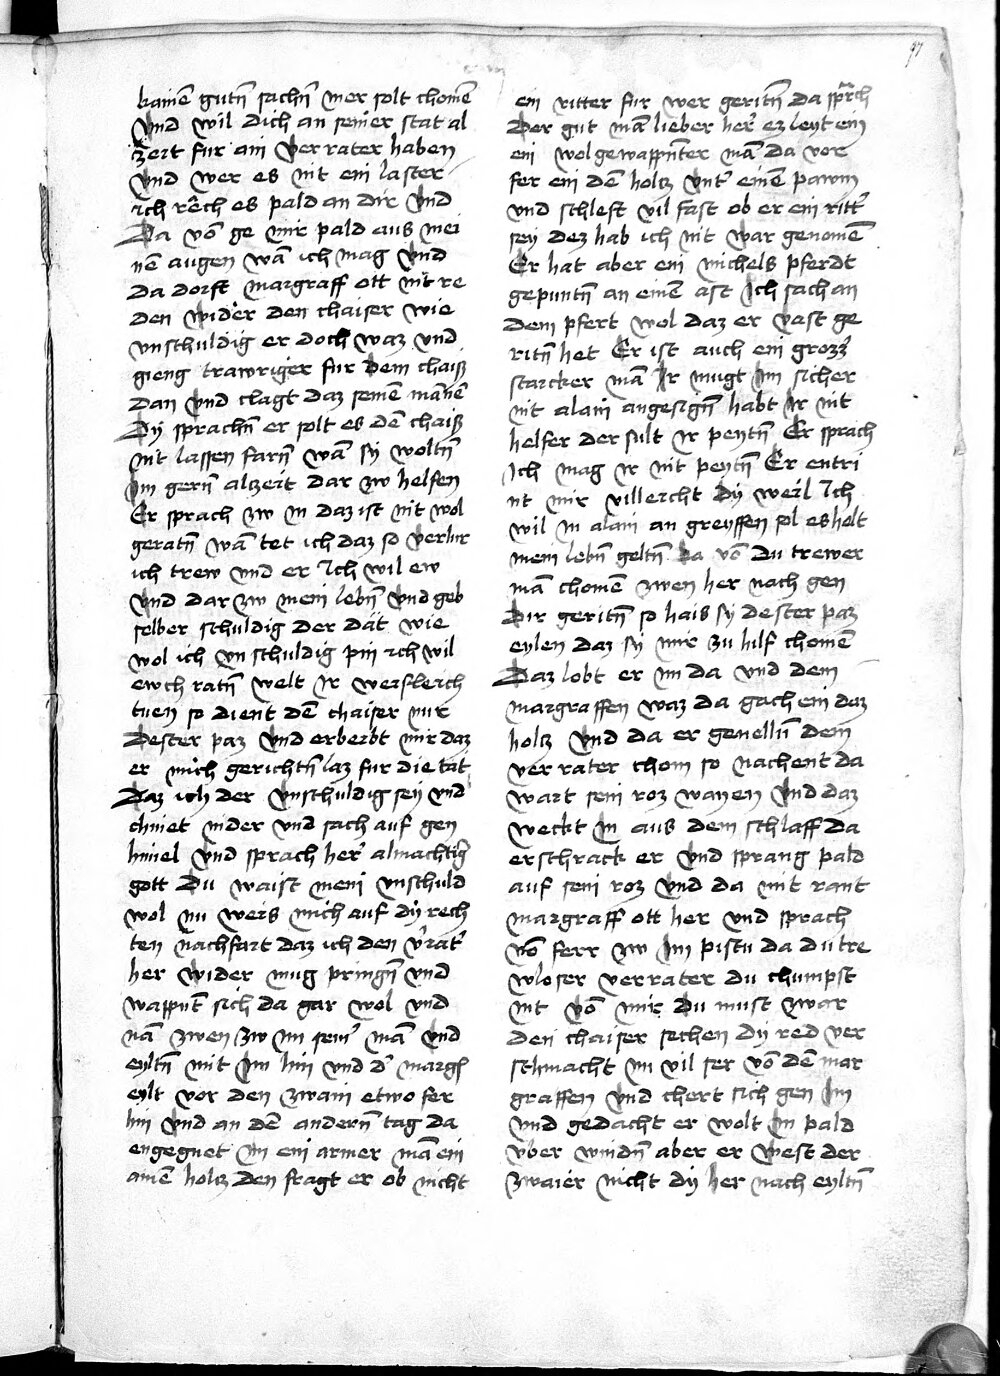 97
kaine͂ gutn̄ sachn̄ mer solt chome͂
Vnd wil dich an seiner stat al
Zeit fur ain Verrater haben
Vnd wer es nit ein laster
ich rech es pald an dir Vnd
Da vo͂ ge mir pald aus mei
ne͂ augen wa͂ ich mag Vnd
da dorft margraff ott nit re
den wider den chaiser wie
vnschuldig er doch waz vnd
gieng trawriger fur dem chaiß
Dan vnd clagt daz seine͂ ma͂ne͂
Dÿ sprachn̄ er solt es de͂ chaiß
nit lassen farn̄ wa͂ sÿ woltn̄
Im gern̄ alzeit dar zw helfen
Er sprach zw in daz ist nit wol
geratn̄ wa͂ tet ich daz so verlur
ich trew vnd er Ich wil ew
Vnd dar zw mein lebn̄ Vnd geb
selber schuldig der dat wie
wol ich vnschuldig pin ich wil
ewch ratn̄ welt ir weisleich
tuen so dient de͂ chaiser nur
Dester paz Vnd erberbt mir daz
er mich gerichtn̄ laz fur die tat
Daz ich der Vnschuldig sey vnd
chniet nider vnd sach auf gen
himel Vnd sprach her' almachtig'
gott Du waist mein vnschuld
wol nu weis mich auf dÿ rech
ten nachfart daz ich den v'rat'
her wider mug pringn̄ vnd
wappnt͂ sich da gar wol vnd
na͂ zwen zw im sein' ma͂ Vnd
eyltn̄ mit Im hin vnd d' margf
eylt vor den zwain etwo fer
hin Vnd an de͂ andern̄ tag da
engegnet im ein armer ma͂ ein
aine͂ holcz den fragt er ob nicht
ein ritter fur wer geritn̄ da sprach
Der gut ma͂ lieber her' ez leyt ein
ein wolgewappn̄ter ma͂ da vor
fer ein de͂ holcz Vnt' eine͂ pawm
vnd schleft vil fast ob er ein ritt'
sey dez hab ich nit war genome͂
Er hat aber ein michels pferdt
gepuntn̄ an eine͂ ast Ich sach an
dem pfert wol daz er Vast ge
ritn̄ het Er ist auch ein grozz'
starcker ma͂ Ir mugt Im sicher
nit alain angesign̄ habt Ir nit
helfer der sult ir peytn̄ Er sprach
Ich mag ir nit peytn̄ Er entri
nt mir villeicht dÿ weil Ich
wil in alain an greyffen sol es helt
mein lebn̄ geltn̄ da vo͂ du trewer
ma͂ chome͂ zwen her nach gen
Dir geritn̄ so hais sÿ dester paz
eylen daz sÿ mir zu hilf chome͂
Daz lobt er im da vnd dem
margraffen waz da gach ein daz
holcz Vnd da er genelln̄ dem
verrater chom so nachent da
wart sein roz wayen Vnd daz
weckt In aus dem schlaff da
erschrack er Vnd sprang pald
auf sein roz Vnd da mit rant
margraff ott her vnd sprach
vo͂ ferr zw Im pistu da du tre
wloser verrater du chumpst
nit vo͂ mir Du must zwar
den chaiser sechen dÿ red ver
schmacht im vil ser vo͂ de͂ mar
graffen Vnd chert sich gen Im
Vnd gedacht er wolt In pald
vber windn̄ aber er west der
zwaier nicht dÿ her nach eyltn̄